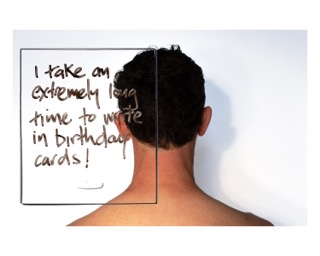 I take an
extremely long
time to write
in birthday
cards!